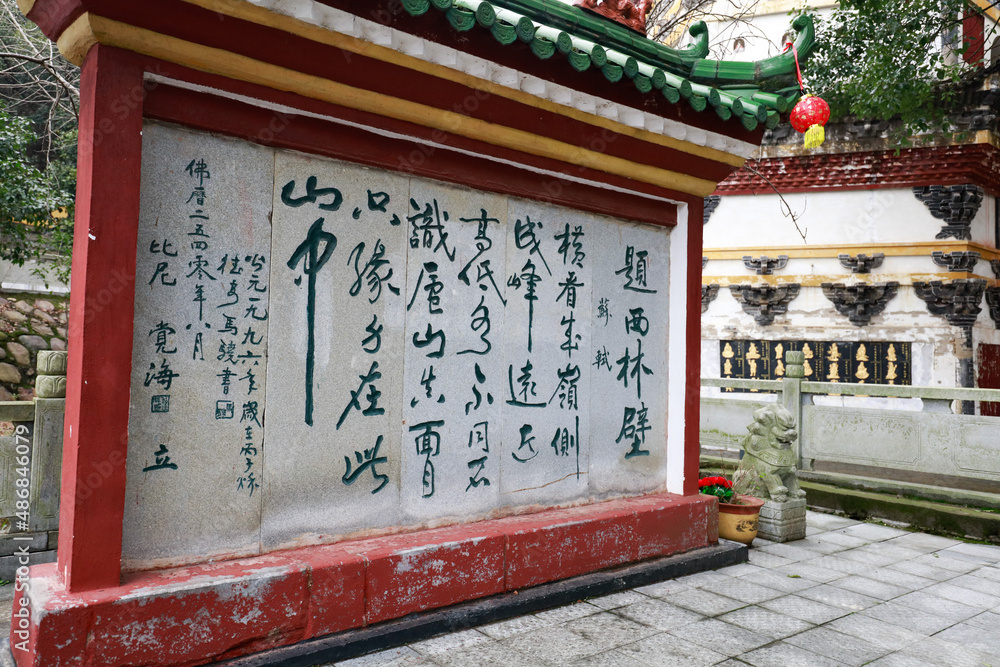 題西林壁
蘇軾
橫看成嶺側
成峰遠近
高低各不同不
識廬山真面目
只緣身在此
山中
公元一九九六年歲在丙子秋
馬驍書
佛曆二五四零年八月
比尼 覺海 立
Adobe Stock | #486846079